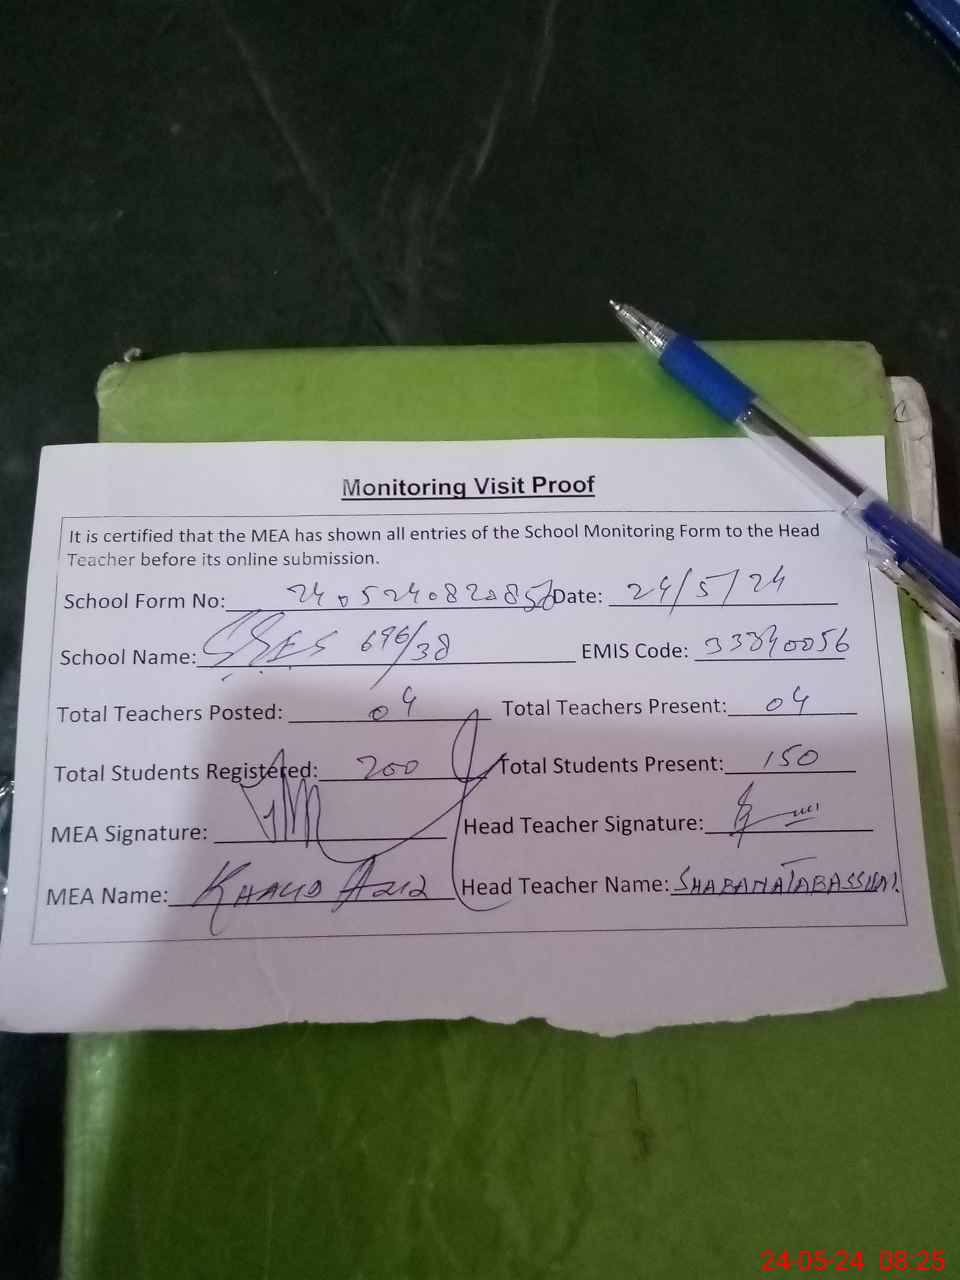 Monitoring Visit Proof
It is certified that the MEA has shown all entries of the School Monitoring Form to the Head
Teacher before its online submission.
School Form No: Date: 24/5/24
School Name: 696/38 EMIS Code: 33340056
Total Teachers Posted: 04 Total Teachers Present: 04
Total Students Registered: 200 Total Students Present: 150
MEA Signature: Head Teacher Signature:
MEA Name: KHALID AZIZ Head Teacher Name: SHABANA TABASSUM
24-05-24 08:25